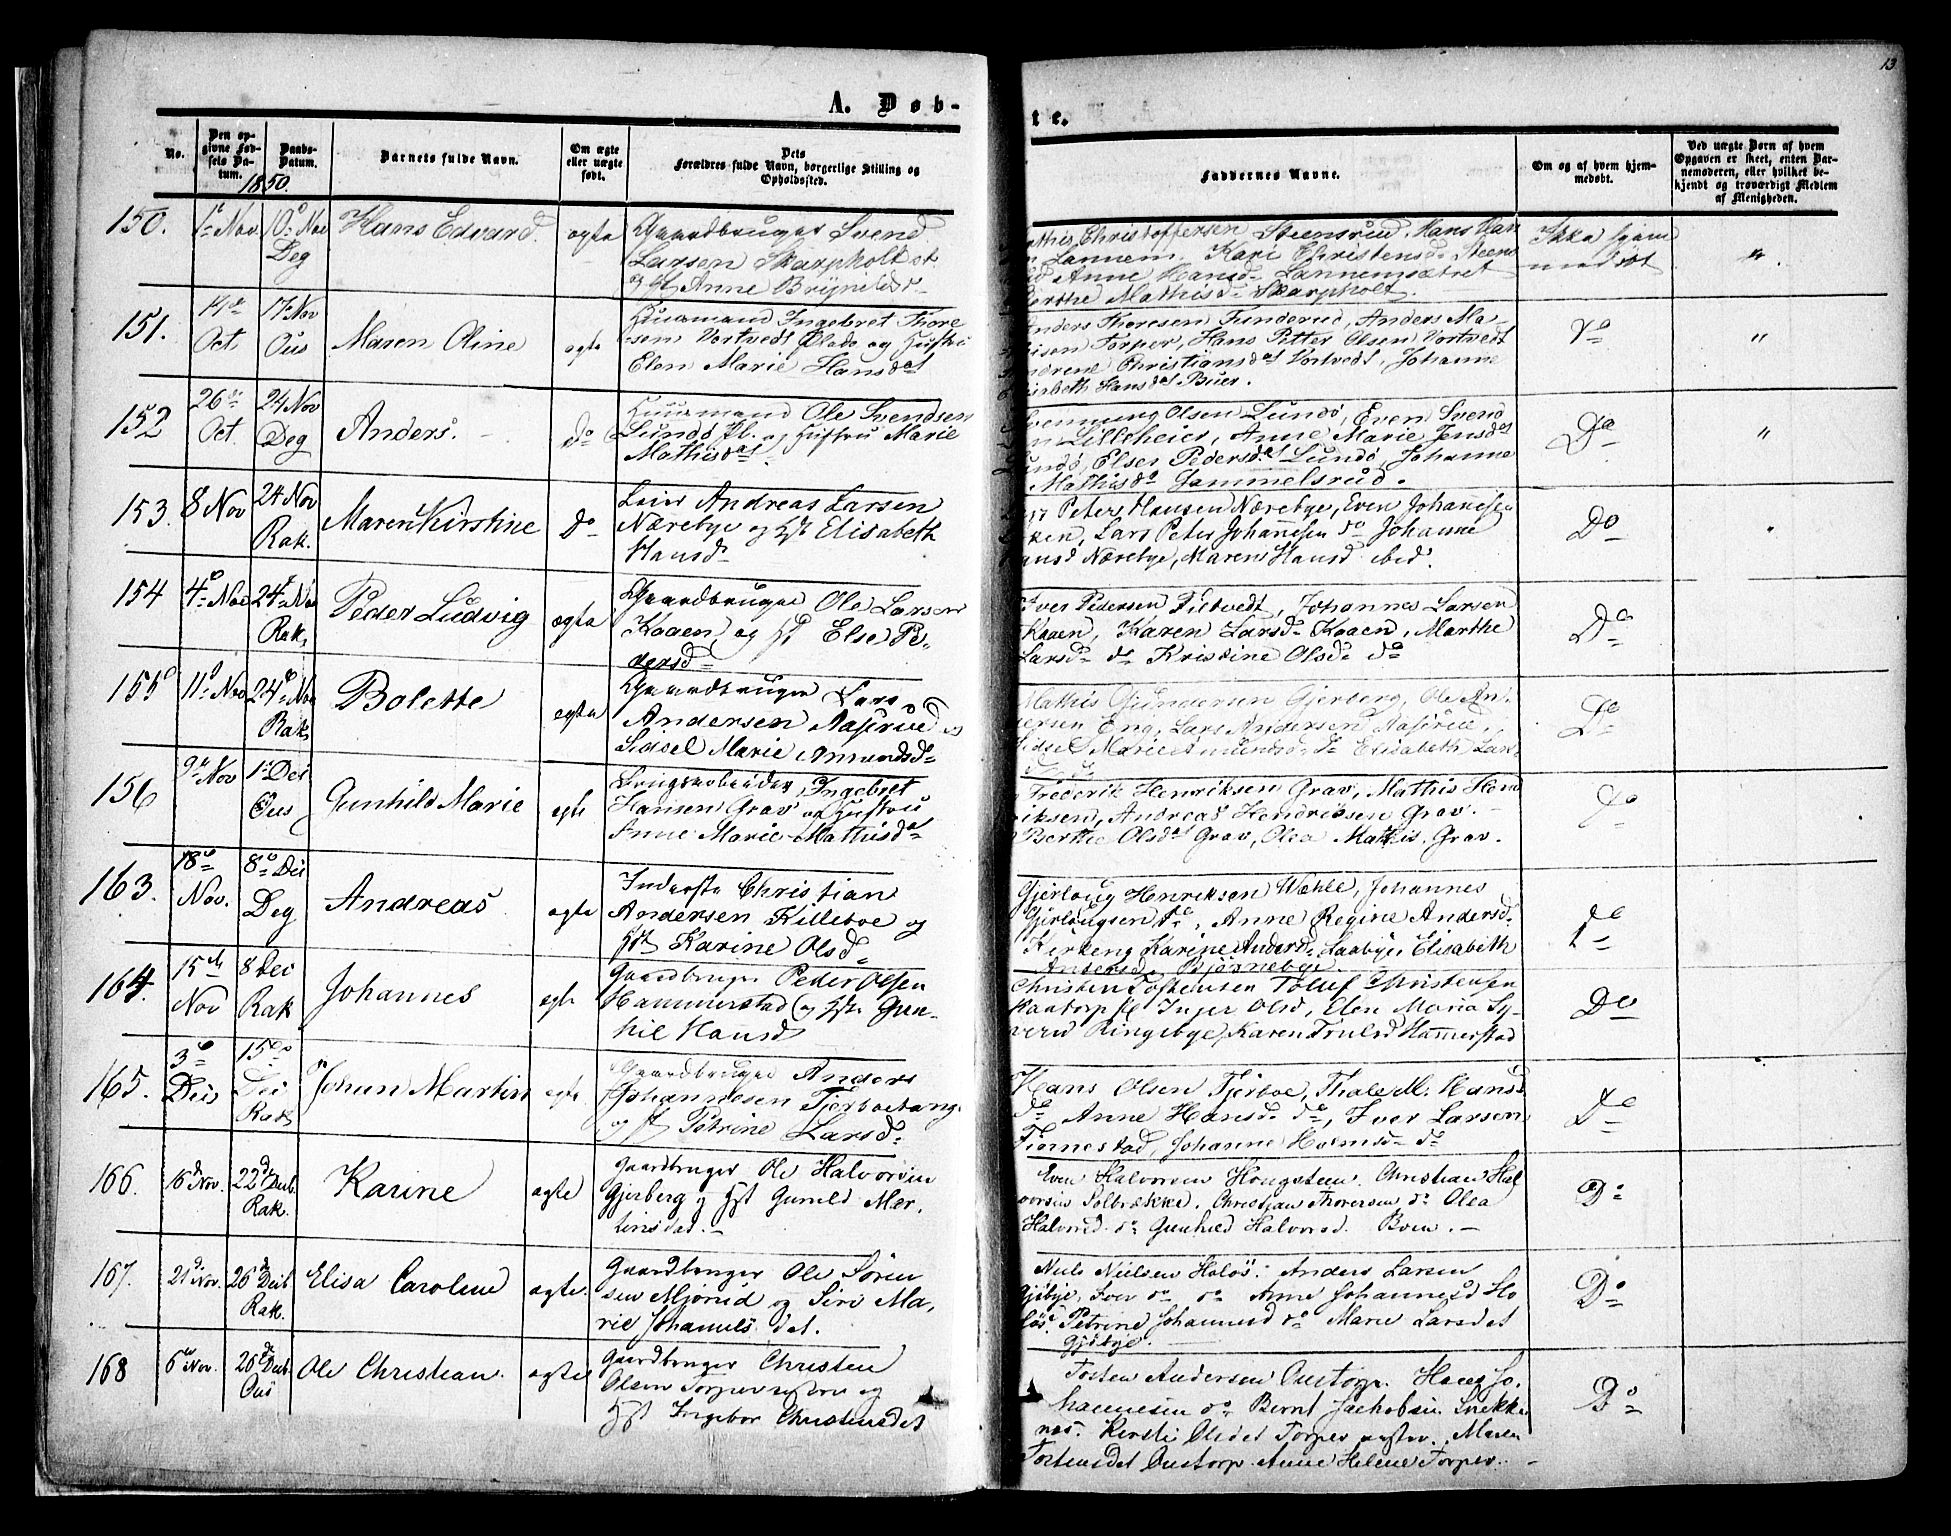 13
A. Døb-
te.
No.
Den op-
givne Fød-
sels Da-
tum.
Daabs-
Datum.
1850.
Barnets fulde Navn.
Om ægte
eller uægte
født.
Dets
Forældres fulde Navn, borgerlige Stilling og
Opholdssted.
Faddernes Navne.
Om og af hvem hjem-
medøbt.
Ved uægte Børn af hvem
Opgaven er skeet, enten Bar-
nemoderen, eller hvilket be-
kjendt og troværdigt Medlem
af Menigheden.
150.
1e Nov.
10de Nov
Deg
Hans Edvard.
ægte
Gaardbruger Svend
Larsen Skarpholt
og Anne Brynildsd
Mathis Christoffersen Steensrud, Hans Han
Lannem. Kari Christensd. Steens
Anne Hansd. Lannemsætret
Berthe Mathisd. Skarpholt.
Ikke hjem
medøbt
"
151.
Oct.
17 Nov
Ous
Maren Oline
ægte
Huusmand Ingebret Thore
sen Vortvedt og Hustru
Elen Marie Hansdat
Anders Thoresen Funderud, Anders Ma-
thisen Torper, Hans Petter Olsen Vortvedt
Andrene Christiansdat Vortvedt, Johanne
Lisbeth Hansdat Buer.
Do
"
152
26de
Oct.
24 Nov
Deg
Anders.
Do
Huusmand Ole Svendsen
Lundø Pl. og Hustru Marie
Mathisdat
Olsen Lundø, Even Svend
Lilleheier, Anne Marie Jensdat
Lundø, Elser Pedersdat Lundø, Johanne
Mathisd Gammelsrud.
Do
"
153.
8 Nov
24 Nov
Rak.
Maren Kirstine
Do
Leier Andreas Larsen
Nærebye og Hst Elisabeth
Hansd
Peter Hansen Nærebye, Even Johannesen
Lars Peter Johannesen do Johanne
Hansd Nærebye, Maren Hansd ibid.
Do
154
4de Nov
24de Nov
Rak.
Peder Ludvig
ægte
Gaardbruger Ole Larsen
Kaaen og H. Else Pe-
dersd
Iver Pedersen Fietvedt, Johannes Larsen
Kaaen, Karen Larsd. Kaaen, Marthe
Larsd. do Kristine Olsd. do
Do
155
11e Nov
24de Nov
Rak.
Bolette
ægte
Gaardbruger Lars
Andersen Aasrud og
Sidsel Marie Amundsd
Mathis Gundersen Gjerberg, Ole An-
dersen Eng, Lars Andersen Aasrud,
Sidsel Marie Amundsd. do Elisabeth Lars
Do
156
9de Nov
1e Dec
Ous
Gunhild Marie
ægte
Brugsarbeider Ingebret
Hansen Grav og Hustru
Anne Marie Mathisdat
Frederik Henriksen Grav, Mathis Hen
riksen, Andreas Hendriksen Grav.
Berthe Olsdat Grav, Olea Mathis. Grav.
Do
163.
18de
Nov.
8de Dec
Deg
Andreas
ægte
Inderste Christian
Andersen Killeboe og
Hst Karine Olsd.
Gjerloug Henriksen Wæhle, Johannes
Gjerlougsen do, Anne Regine Andersd.
Kirkeng Karine Andersd. Saabye, Elisabeth
Andersd. Bjørnebye.
Do
164.
15de
Nov
8 Dec
Rak
Johannes
ægte
Gaardbruger Peder Olsen
Hammerstad og Hst. Gun-
hil Hansd
Christen Tostensen Toluf Christensen
Kaatorp Inger Olsd, Elen Maria Sy-
versd Ringebye, Karen Trulsd Hammerstad
Do
165.
3de
Dec
15de
Dec
Rak
Johan Martin
ægte
Gaardbruger Anders
Johannesen Tjerboetang
og Petrine Larsd.
Hans Olsen Tjerboe, Thale M. Hansd
do Anne Hansd. do, Iver Larsen
Tiernestad, Johanne Holmsd. do
Do
166.
16de Nov.
22de Decb.
Rak.
Karine
ægte
Gaardbruger Ole Halvorsen
Gjerberg og Hst Gunild Mar
tinsdat.
Even Halvorsen Hougsteen. Christian Hal
vorsen Solbrække. Christian Thoresen do Olea
Halvorsd. do Gunhild Halvorsd. Boen.
Do
167.
21de Nov.
26de Decb.
Rak.
Elisa Caroline
ægte.
Gaardbruger Ole Søren
sen Mjørud og Siri Ma-
rie Johannesdat.
Niels Nielsen Holøs. Anders Larsen
Gjøbye, Iver do do Anne Johannesd Ho
løs. Petrine Johannesd do Maren Larsdat
Gjøbye.
Do
168
6te Nov.
26de Decb.
Ous
Ole Christian.
ægte
Gaardbruger Christen
Olsen Torper og
Hst Ingebor Christensdat
Tosten Andersen Oustorp. Hans Jo-
hannesen do Bernt Jachobsen Snekke
næs. Kirsti Olsdat Torper. Maren
Tostensdat Oustorp. Anne Helene Torper.
Do